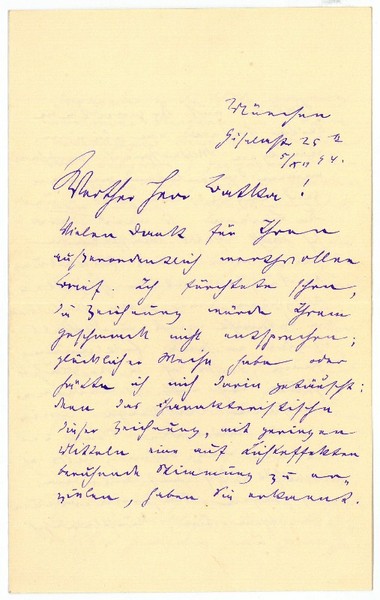 München
Giselastr 25 II
5/XII 94.
Werther Herr Batka!
Vielen Dank für Ihren
außerordentlich werthvollen
Brief. Ich fürchtete schon,
die Zeichnung würde Ihrem
Geschmack nicht entsprechen;
glücklicher Weise habe oder
hätte ich mich darin getäuscht:
denn das Charakteristische
dieser Zeichnung, mit geringen
Mitteln eine auf Lichteffekten
beruhende Stimmung zu er-
zielen, haben Sie erkannt.